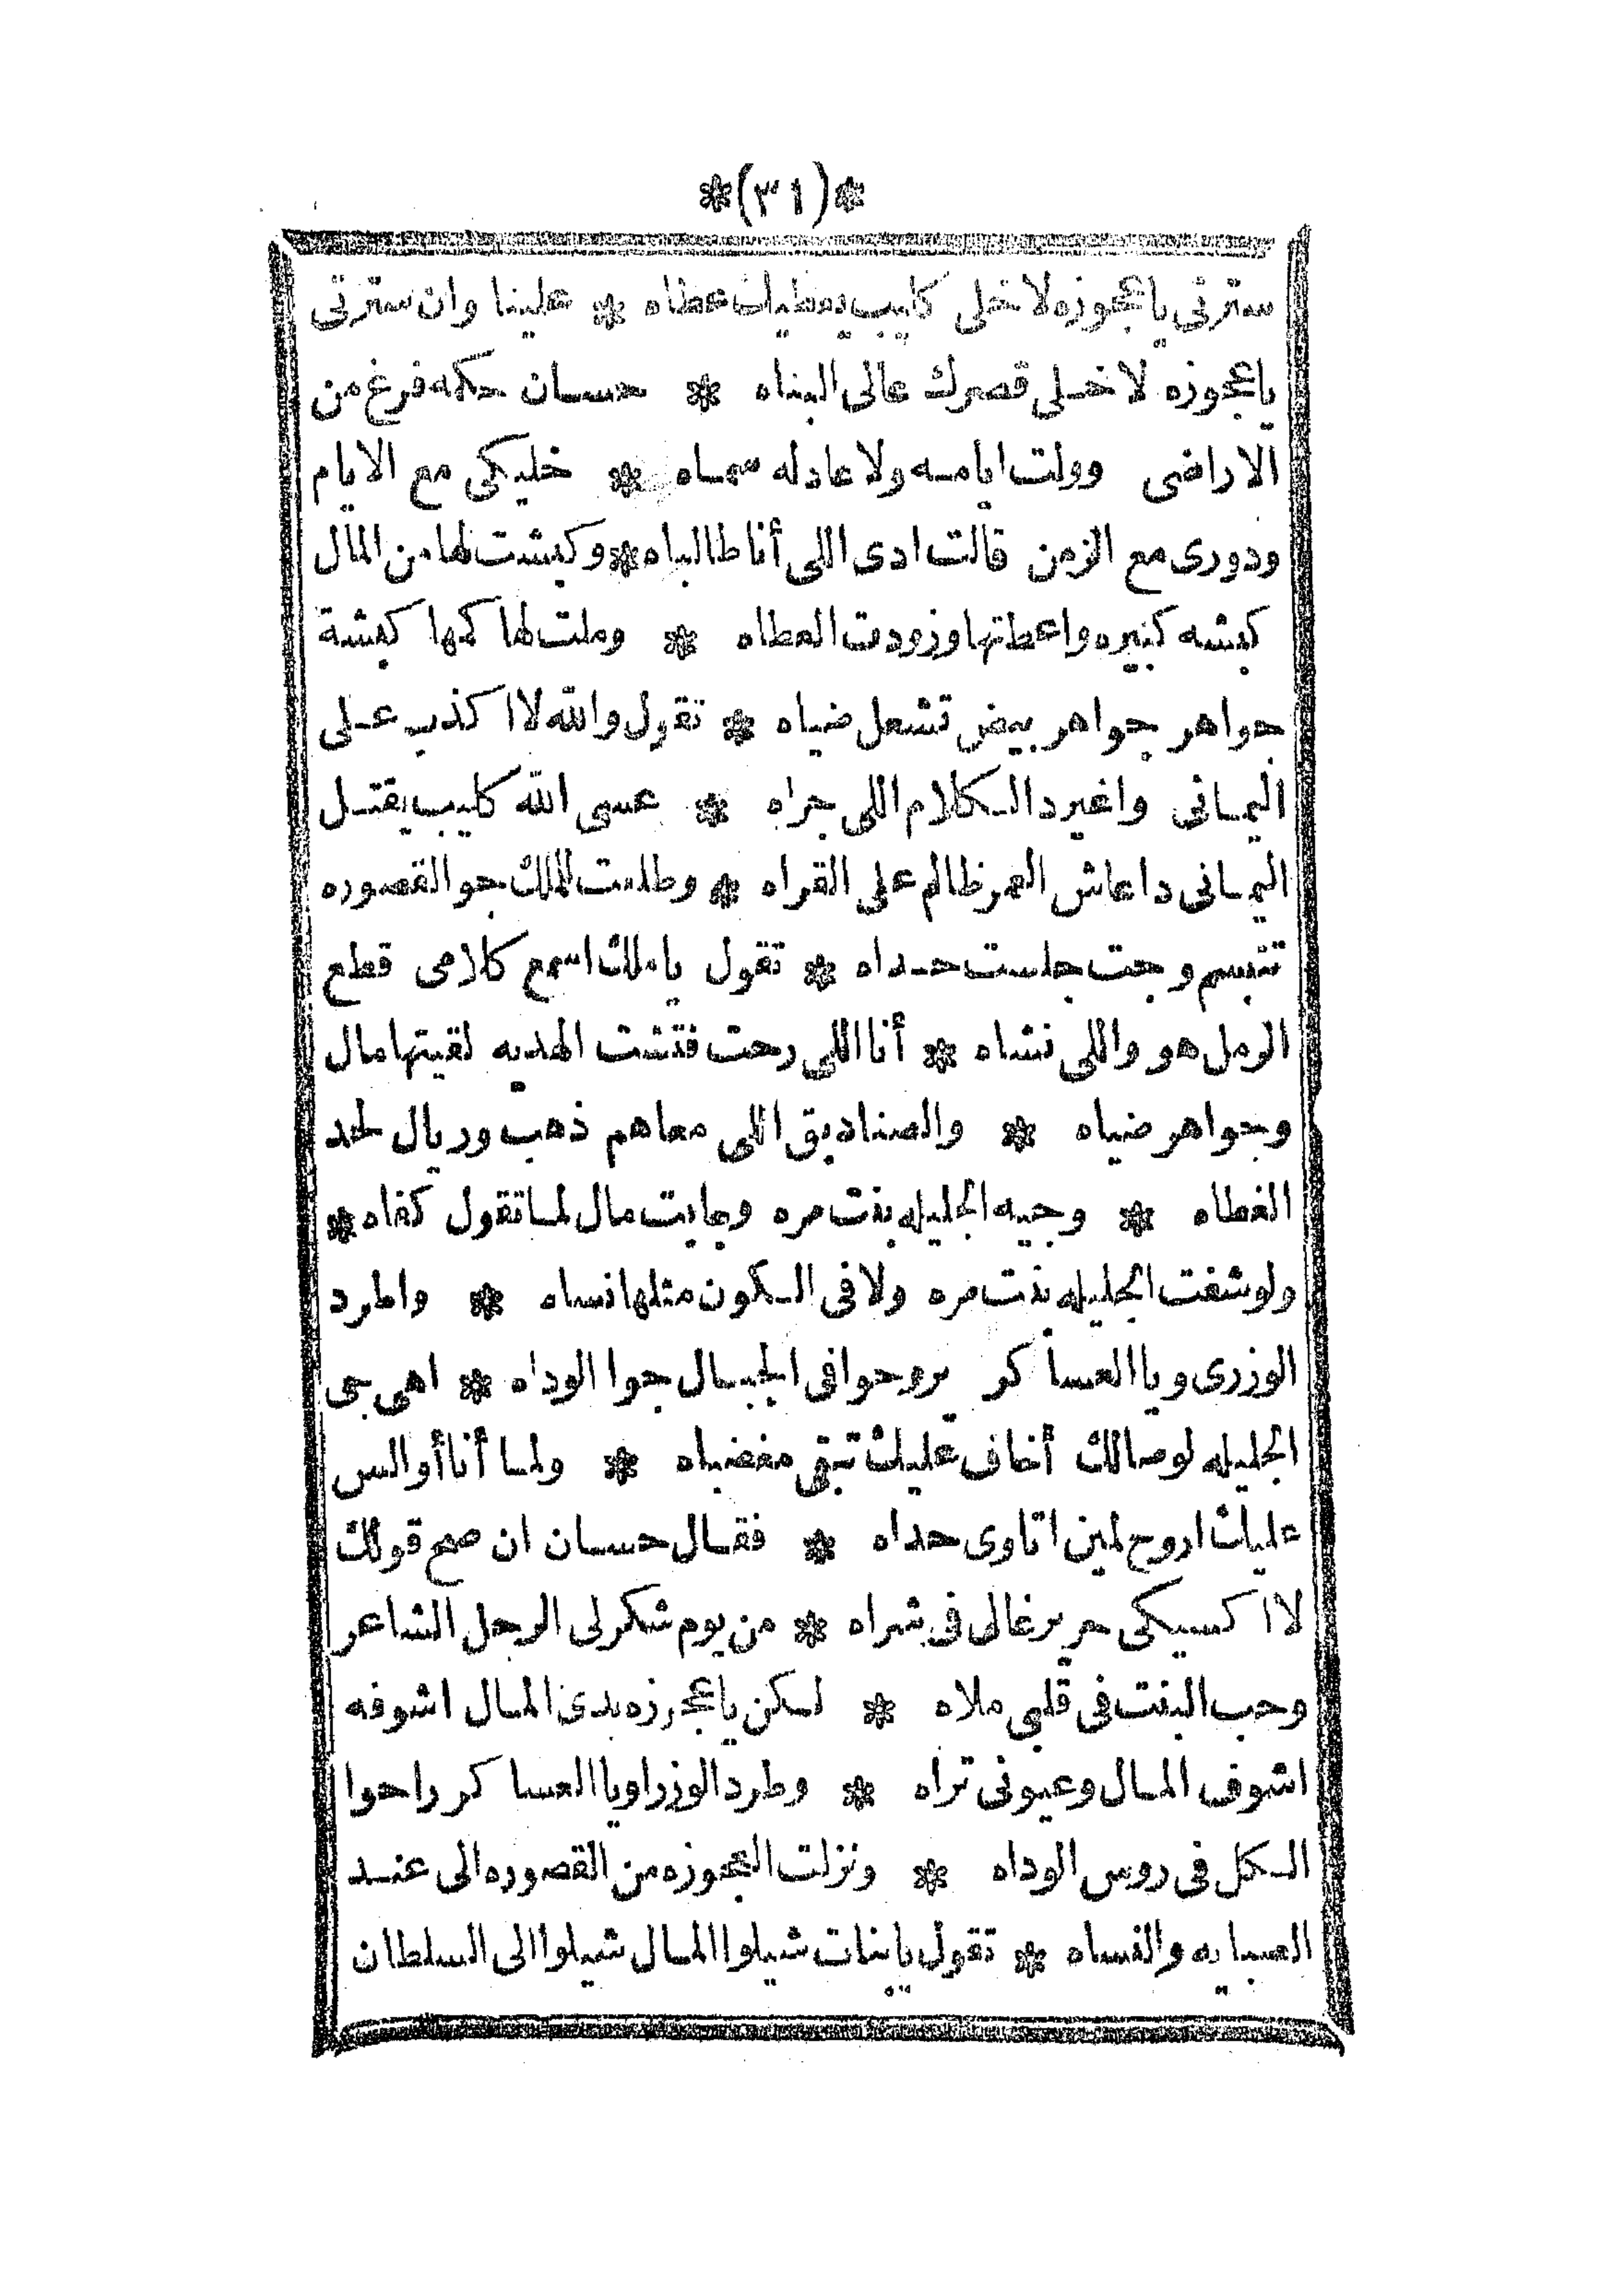 *(٣١)*
سترتى ياعجوزه لاخلى كليب يعطيك عطاه * علينا وان سترتى
ياعجوزه لاخلى قصرك عالى البناه * حسان حكمه فرغ من
الاراضى وولت ايامه ولاعادله سماه * خليكى مع الايام
ودورى مع الزمن قالت ادى اللى أنا طالباه * وكبشت لها من المال
كبشه كبيره واعطتها وزودت العطاه * وملت لها كمها كبشة
جواهر جواهر بيض تشعل ضياه * تقول والله لا اكذب على
اليمانى واغير دالكلام اللى جراه * عسى الله كليب يقتل
اليمانى داعاش العمر ظالم على القراه * وطلعت للملك جو القصوره
تتبسم وجت جلست حداه * تقول ياملك اسمع كلامى قطع
الرمل هو واللى نشاه * أنا اللى رحت فتشت الهديه لقيتها مال
وجواهر ضياه * والصناديق اللى معاهم ذهب وريال لحد
الغطاه * وجيه الجليله بنت مره وجابت مال لما تقول كفاه *
ولو شفت الجليله بنت مره ولا فى الكون مثلها نساه * واطرد
الوزرى ويا العساكر يروحوا فى الجبال جوا الوداه * اهى جى
الجليله لوصالك أخاف عليك تبقى مغضباه * ولما أنا أوالس
عليك اروح لمين اتاوى حداه * فقال حسان ان صح قولك
لا اكسيكى حرير غالى فى شراه * من يوم شكرلى الرجل الشاعر
وحب البنت فى قلبى ملاه * لكن ياعجوزه بدى المال اشوفه
اشوف المال وعيونى تراه * وطرد الوزرا ويا العساكر راحوا
الكل فى روس الوداه * ونزلت العجوزه من القصوره الى عند
الصبايه والنساه * تقول يابنات شيلوا المال شيلوا الى السلطان